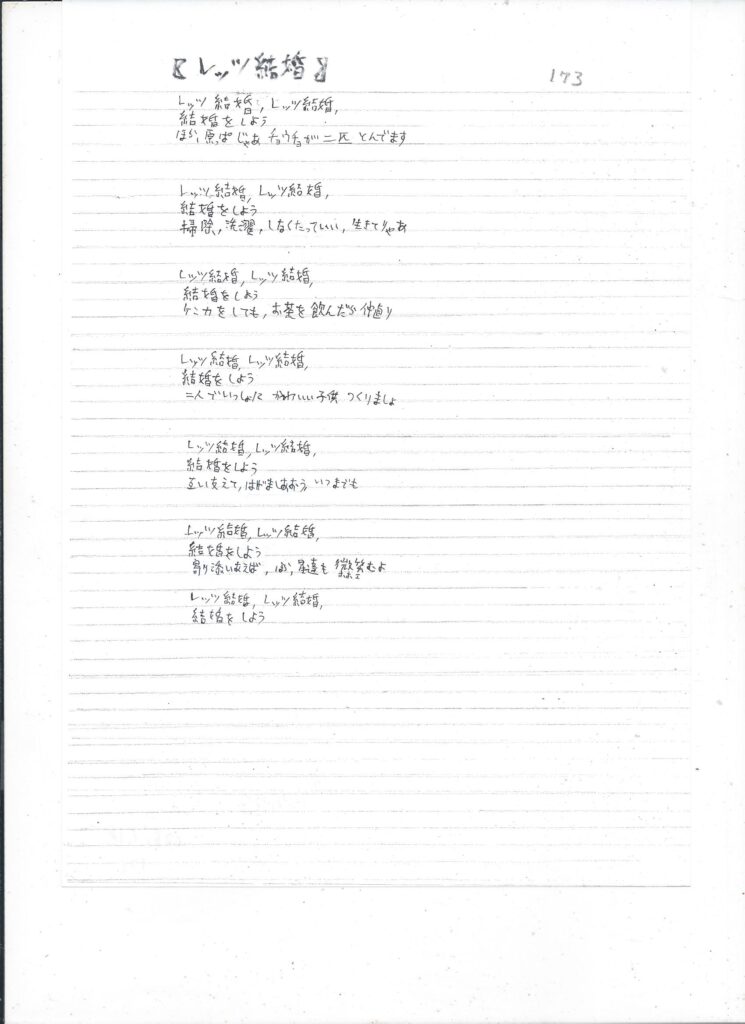 【レッツ結婚】
173
レッツ結婚, レッツ結婚,
結婚をしよう
ほら, 原っぱじゃあ チョウチョが二匹 とんでます
レッツ結婚, レッツ結婚,
結婚をしよう
掃除, 洗濯, しなくたっていい, 生きてりゃあ
レッツ結婚, レッツ結婚,
結婚をしよう
ケンカをしても, お茶を飲んだら仲直り
レッツ結婚, レッツ結婚,
結婚をしよう
二人でいっしょに かわいい子供 つくりましょ
レッツ結婚, レッツ結婚,
結婚をしよう
互い支えて, はげましあおう いつまでも
レッツ結婚, レッツ結婚,
結婚をしよう
寄り添いあえば, ほら, 星達も 微笑むよ
レッツ結婚, レッツ結婚,
結婚をしよう